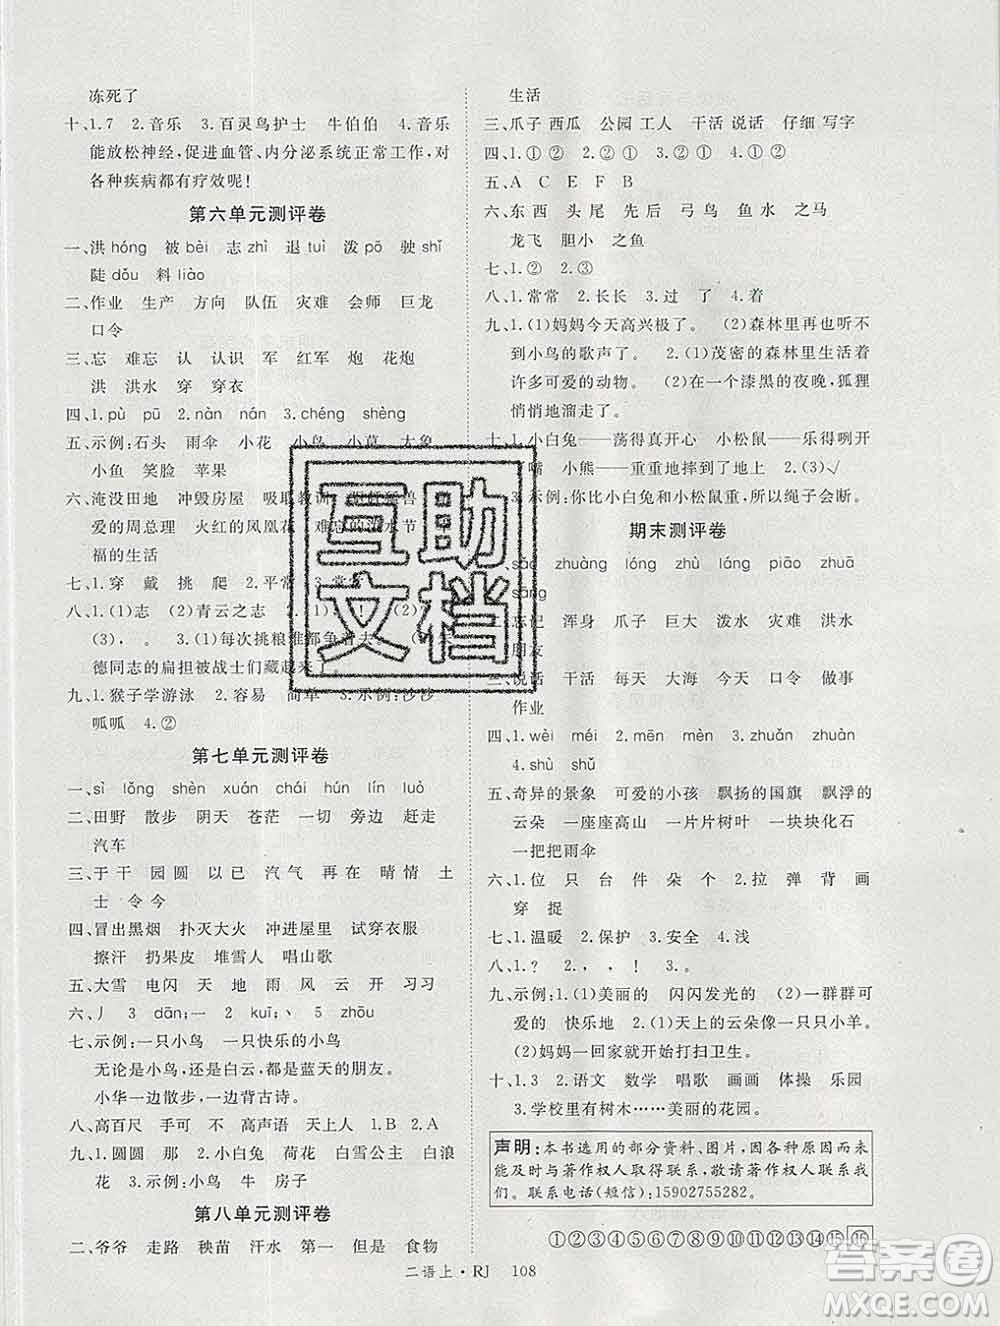 冻死了
十、1.7　2.音乐　3.百灵鸟护士　牛伯伯　4.音乐
能放松神经,促进血管、内分泌系统正常工作,对
各种疾病都有疗效呢!
第六单元测评卷
一、洪 hóng　被 bèi　志 zhì　退 tuì　泼 pō　驶 shǐ
陡 dǒu　料 liào
二、作业　生产　方向　队伍　灾难　会师　巨龙
口令
三、忘　难忘　认　认识　军　红军　炮　花炮
洪　洪水　穿　穿衣
四、1.pù　pū　2.nàn　nán　3.chéng　shèng
五、示例:石头　雨伞　小花　小鸟　小草　大象
小鱼　笑脸　苹果
六、淹没田地　冲毁房屋　吸取教训
爱的周总理　火红的凤凰花　难忘的泼水节
福的生活
七、1.穿　戴　挑　爬　2.平常　3.常常
八、1.(1)志　(2)青云之志　2.(1)!　(2)
(3),。　3.(1)每次挑粮谁都争着去。
德同志的扁担被战士们藏起来了。
九、1.猴子学游泳　2.容易　简单　3.示例:沙沙
呱呱　4.②
第七单元测评卷
一、sì　lǒng　shèn　xuán　chái　hún　lín　luò
二、田野　散步　阴天　苍茫　一切　旁边　赶走
汽车
三、于　干　园　圆　已　以　汽　气　再　在　晴　情　土
士　令　今
四、冒出黑烟　扑灭大火　冲进屋里　试穿衣服
擦汗　扔果皮　堆雪人　唱山歌
五、大雪　电闪　天　地　雨　风　云　开　月
六、丿　3　dān;一　2　kuī;丶　5　zhōu
七、示例:一只小鸟　一只快乐的小鸟
无论是小鸟,还是白云,都是蓝天的朋友。
小华一边散步,一边背古诗。
八、高百尺　手可　不　高声语　天上人　1.B　2.A
九、1.圆圆　那么　2.小白兔　荷叶　白雪公主　白浪
花　3.示例:小鸟　牛　房子
第八单元测评卷
二、爷爷　走路　秧苗　汗水　第一　但是　食物
生活
三、爪子 西瓜　公园 工人　干活 说话　仔细 写字
四、1.①　②　2.①　②　3.②　①
五、A　C　D　E　F　B
六、东　西　头　尾　先　后　弓　鸟　鱼　水　之　马
龙　飞　胆　小　之　鱼
七、1.②　2.③
八、1.常常　2.长长　3.过　了　4.着
九、1.(1)妈妈今天高兴极了。　(2)森林里再也听不
到小鸟的歌声了。　2.(1)茂密的森林里生活着
许多可爱的动物。　(2)在一个漆黑的夜晚,狐狸
悄悄地溜走了。
十、1.小白兔——荡得真开心　小松鼠——乐得咧开
了嘴　小熊——重重地摔到了地上　2.×　√
3.示例:你比小白兔和小松鼠重,所以绳子会断。
期末测评卷
一、sǎo　zhuó　lóng　zhù　láng　piāo　zhuā
sāng
二、忘记　浑身　爪子　巨大　泼水　灾难　洪水
朋友
三、说话　干活　每天　大海　今天　口令　做事
作业
四、1.wèi　méi　2.mēn　mèn　3.zhuǎn　zhuàn
4.shù　shǔ
五、奇异的景象　可爱的小孩　飘扬的国旗　飘浮的
云朵　一座座高山　一片片树叶　一块块化石
一把把雨伞
六、1.位　只　台　件　朵　个　2.拉　弹　背　画
穿　捉
七、1.温暖　2.保护　3.安全　4.浅
八、1.?　2.,　,　!　3.。
九、示例:1.美丽的　闪闪发光的　(2)一群群可
爱的　快乐地　2.(1)天上的云朵像一只只小羊。
(2)妈妈一回家就开始打扫卫生。
十、1.3　2.语文　数学　唱歌　画画　体操　乐园
3.学校里有树木……美丽的花园。
声明:本书选用的部分资料、图片,因各种原因而未
能及时与著作权人取得联系,敬请著作权人联系我
们。联系电话(短信):15902755282。
①②③④⑤⑥⑦⑧⑨⑩⑪⑫⑬⑭⑮⑯
二语上·RJ　108
互助
文档
答案圈
MXQE.COM